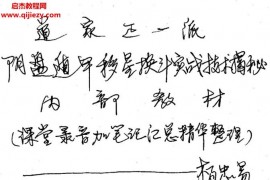 启杰教程网
www.qijiejiaocheng.com
道家正一派
阴盘遁甲移星换斗实战技术揭秘
内部教材
(课堂录音加笔记汇总精华整理)